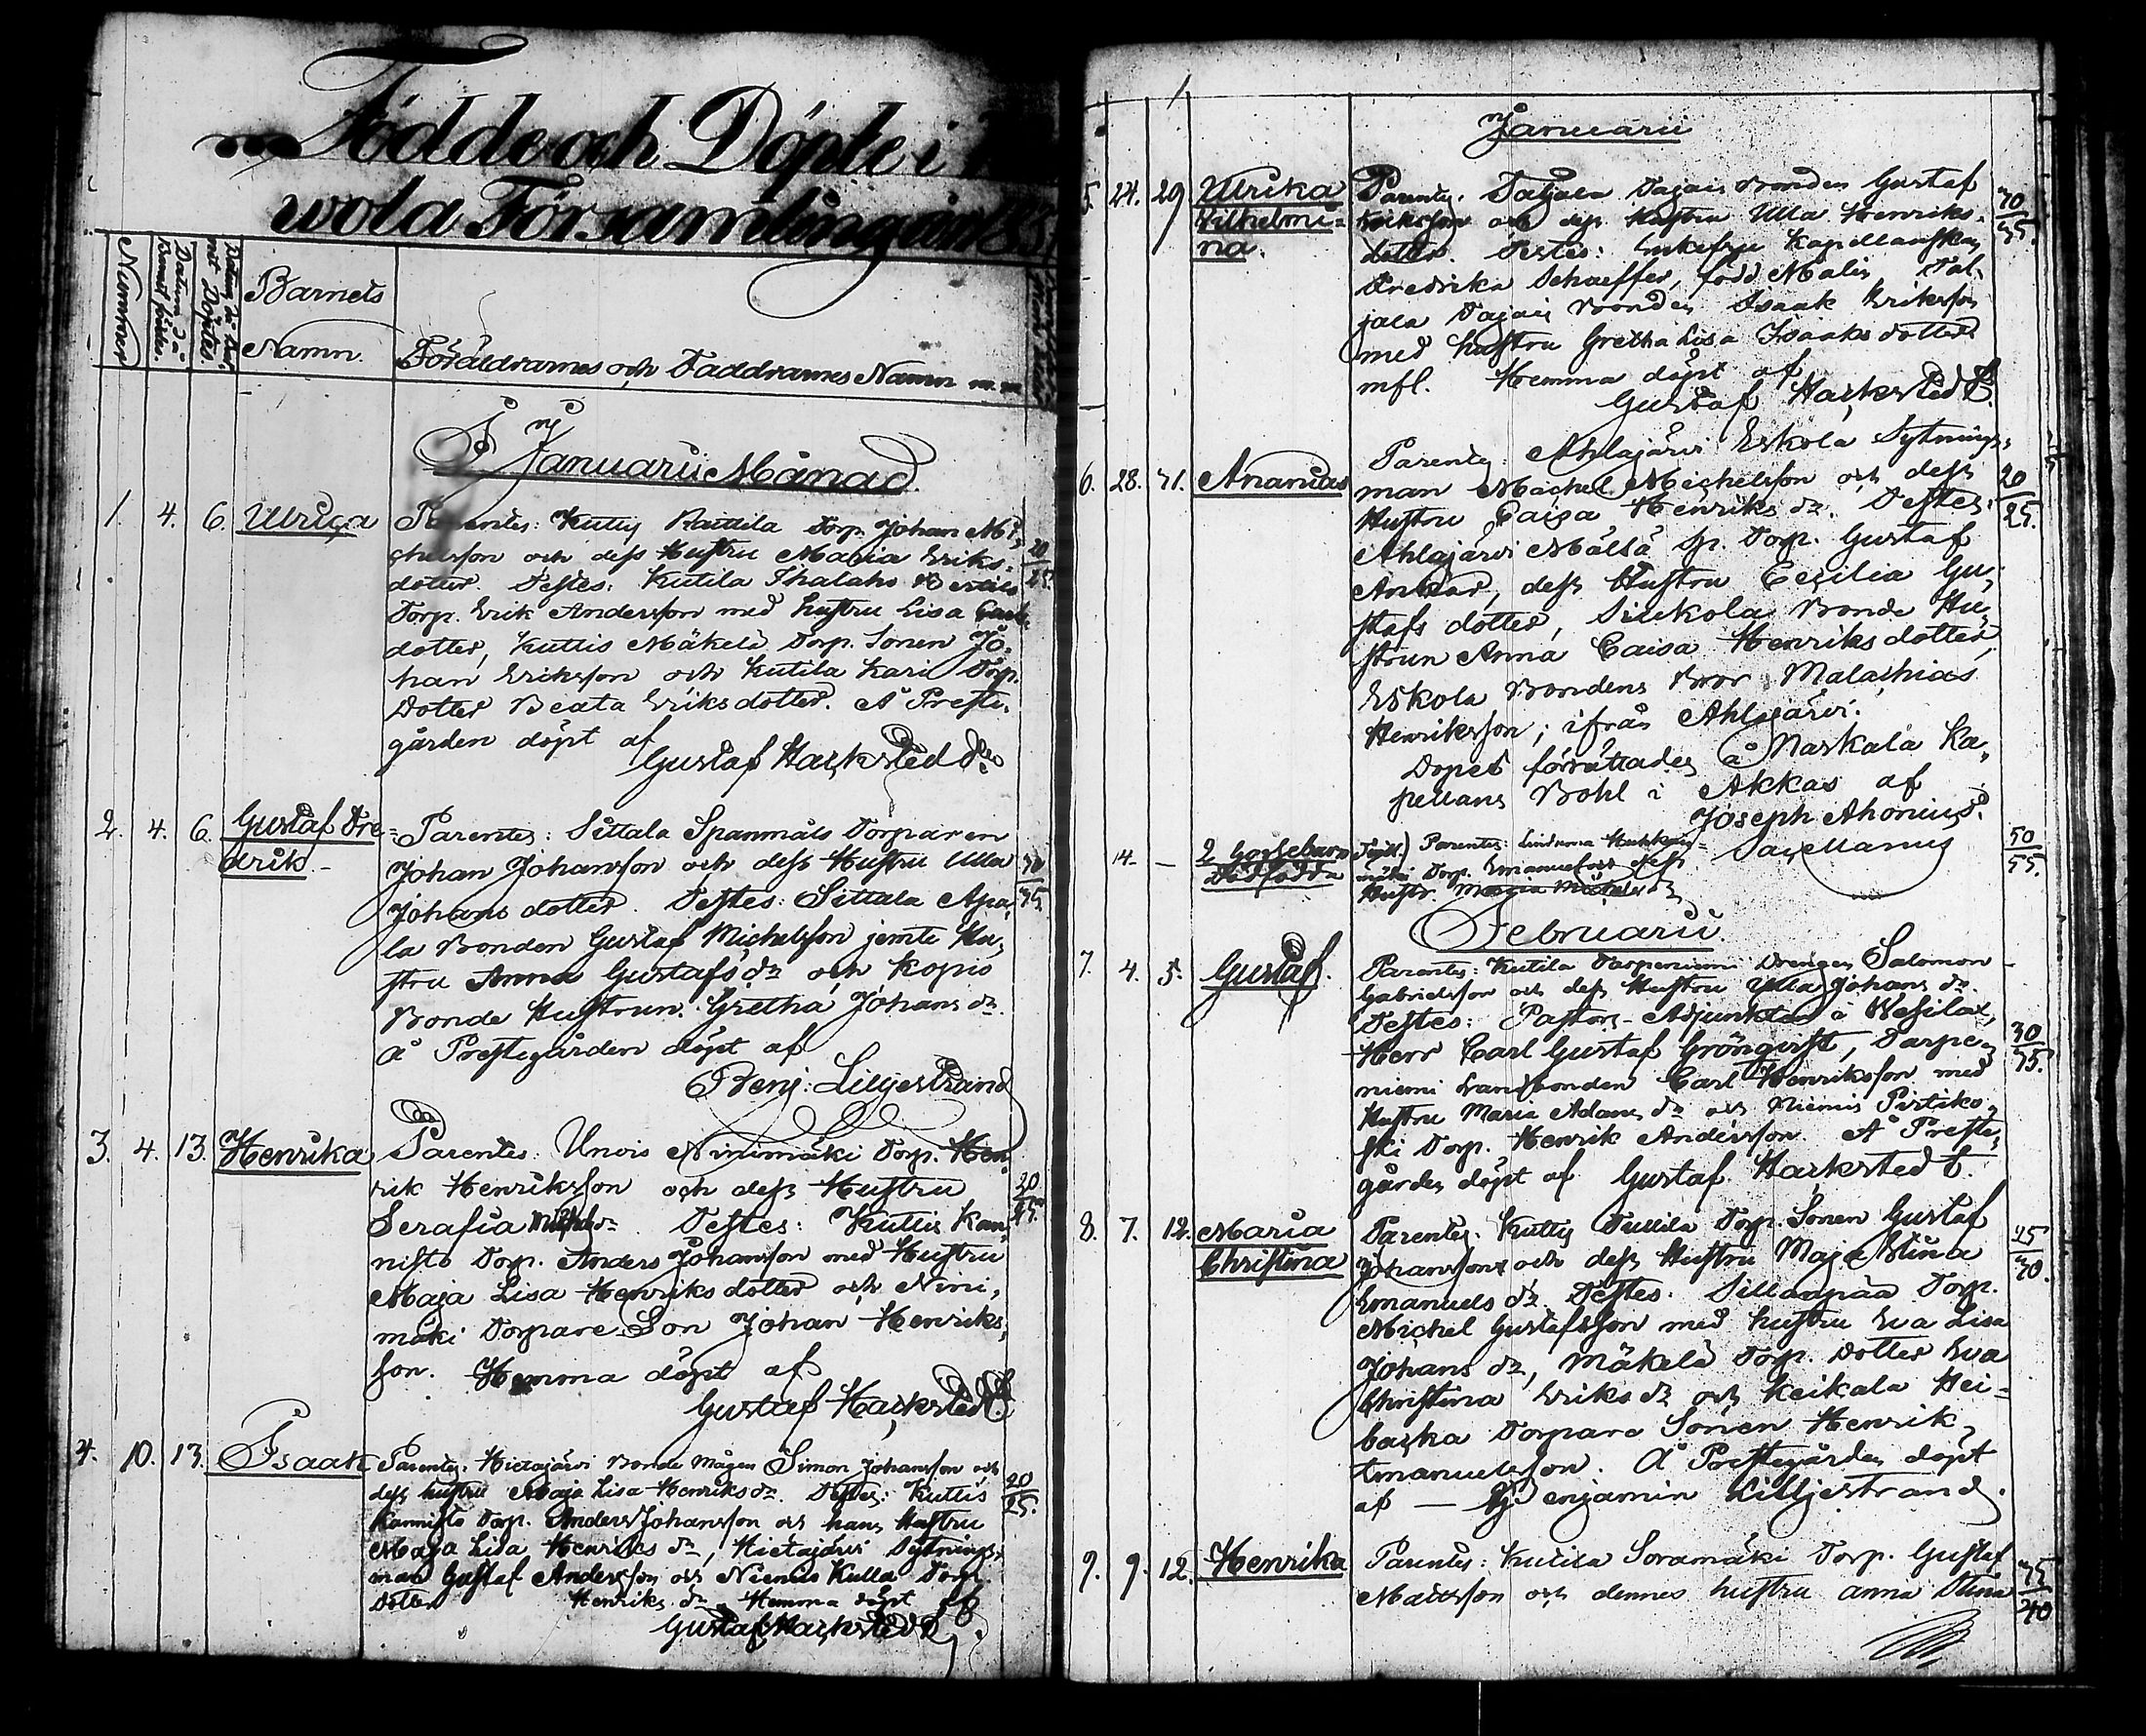 Födde och Döpte i
wola Församling år 185
Nummer
Datum då Barnet föddes.
Datum då det Döptes.
Barnets
Namn.
Föräldrarnes och Faddrarnes Namn m. m.
I Januarii Månad.
1. 4. 6. Ulrica Parentes: Kuttis Raittila Torp. Johan Mi=
chelsson och dess Hustru Maria Eriks= 20/25.
dotter. Testes: Kutila Ihalahs
Torp. Erik Andersson med hustru Lisa
dotter, Kuttis Mäkelä Torp. Sonen Jo=
han Eriksson och Kutila Kari Torp.
Dotter Beata Eriksdotter. Å Preste=
gården döpt af
Gustaf Hackstedt
2. 4. 6. Gustaf Fre= Parentes: Sittala Spannmäls Torparen
drik. Johan Johansson och dess Hustru Ulla 30/35.
Johans dotter. Testes: Sittala Apa=
la Bonden Gustaf Michelsson jemte Hu=
stru Anna Gustafs dr och Kopio
Bonde Hustrun Gretha Johans dr
å Prestegården döpt af
Benj: Liljestrand
3. 4. 13. Henrika Parentes: Uwois Ninimäki Torp. Hen=
rik Henriksson och dess Hustru 20/25.
Serafia Michels dr Testes: Kuttis Kan=
nisto Torp. Anders Johansson med Hustru
Maja Lisa Henriks dotter och Nini=
mäki Torpare Son Johan Henriks=
son. Hemma döpt af
Gustaf Hackstedt.
4. 10. 13. Isaak Parentes: Hietajärvi Bonde Mågen Simon Johansson och
dess hustru Maja Lisa Henriks dr. Testes: Kuttis 20/25.
Kannisto Torp. Anders Johansson och hans Hustru
Maja Lisa Henriks dr, Hietajärvi Sytnings=
man Gustaf Andersson och Niemis Kulla Torp.
Dotter Henriks dr. Hemma döpt af
Gustaf Hackstedt.
1
Januarii
5. 24. 29 Ulrika Parentes: Taljala Bonden Gustaf 30/35.
Wilhelmi= Eriksson och dess Hustru Ulla Henriks=
na. dotter. Testes: Enkefru Kapellanskan
Fredrika Schaeffer, född Malin, Tal=
jala Bonden Isaak Eriksson
med hustru Gretha Lisa Isaaks dotter
mfl. Hemma döpt af
Gustaf Hackstedt.
6. 28. 31. Ananias Parentes: Ahlajärvi Eskola Sytnings=
man Michel Michelsson och dess 20/25.
Hustru Caisa Henriks dr. Testes:
Ahlajärvi Torp. Gustaf
Ankar, dess Hustru Cecilia Gu=
stafs dotter, Sirkola Bonde Hu=
strun Anna Caisa Henriks dotter,
Eskola Bondens Bror Malachias
Henriksson; ifrån Ahlajärvi.
Dopet förrättades å Narkala Ka=
pellans Bohl i Akkas af
Joseph Ahonius.
Sacellanus
14. — 2 Gossebarn Parentes: Lindunna 50/55.
Dödfödda mäki Torp. Emanuelsson dess
Hustr. Maria Michels dr
Februarii
7. 4. 5. Gustaf. Parentes: Kutila Tarpeniemi Drengen Salomon
Gabrielsson och dess Hustru Ulla Johans dr
Testes: Pastors-Adjunkten i Wesilax,
Herr Carl Gustaf Grönqvist, Tarpe= 30/35.
niemi Landbonden Carl Henriksson med
Hustru Maria Adams dr och Niemis Pirtiko=
ski Torp. Henrik Andersson. Å Preste=
gården döpt af Gustaf Hackstedt.
8. 7. 12. Maria Parentes: Kuttis Tullila Torp. Sonen Gustaf 25/30.
Christina Johansson och dess Hustru Maja Stina
Emanuels dr. Testes: Sillanpää Torp.
Michel Gustafsson med hustru Eva Lisa
Johans dr, Mäkelä Torp. Dotter Eva
Christina Eriks dr och Keikala Hei=
backa Torpare Sonen Henrik
Emanuelsson. Å Prestegården döpt
af — Benjamin Liljestrand.
9. 9. 12. Henrika Parentes: Kutila Soramäki Torp. Gustaf 35/40
Mattsson och dennes hustru Anna Stina